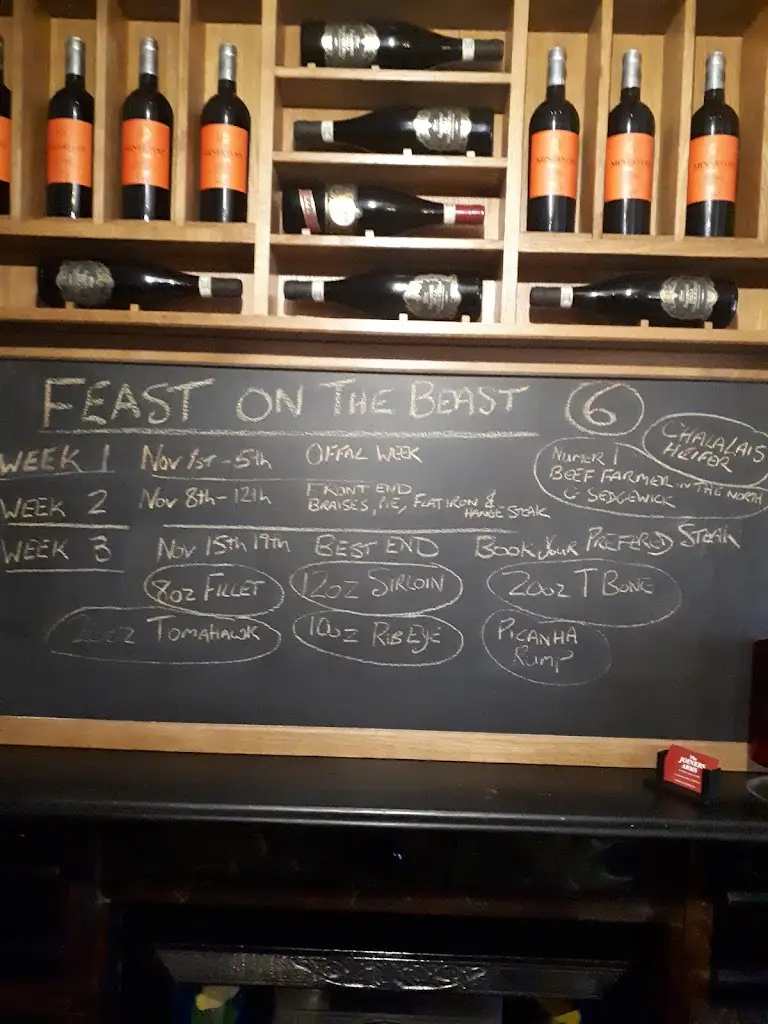 FEAST ON THE BEAST 6
CHALALAIS
HEIFER
NUMER 1
BEEF FARMER IN THE NORTH
G SEDGEWICK
WEEK 1 Nov 1st - 5th OFFAL WEEK
WEEK 2 Nov 8th - 12th FRONT END
BRAISES, PIE, FLATIRON &
HANGE STEAK
WEEK 3 Nov 15th 19th BEST END BOOK your PREFERED STEAK
8oz FILLET 12oz SIRLOIN 20oz T BONE
TOMAHAWK 10oz RIBEYE PICANHA
RUMP
The
JOINERS
ARMS